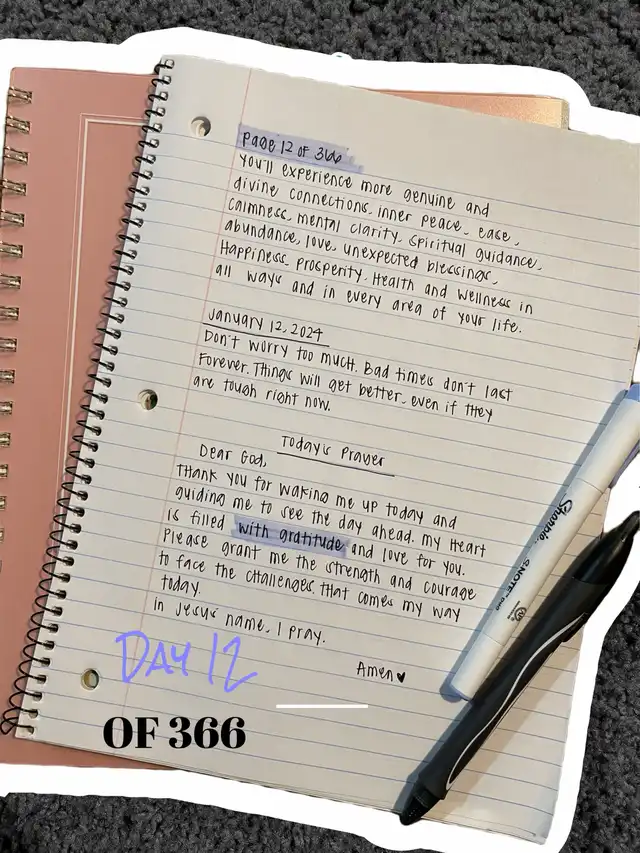 Page 12 of 366
You'll experience more genuine and
divine connections, inner peace, ease,
calmness, mental clarity, spiritual guidance,
abundance, love, unexpected blessings,
Happiness, prosperity, Health and wellness in
all ways and in every area of your life.
January 12, 2024
Don't worry too much. Bad times don't last
Forever. Things will get better, even if they
are tough right now.
Today's Prayer
Dear God,
Thank you for waking me up today and
guiding me to see the day ahead. My heart
is filled with gratitude and love for you.
Please grant me the strength and courage
to face the challenges that comes my way
today.
In Jesus name, I pray.
Amen♥
Sharpie
S·NOTE
DAY 12
OF 366